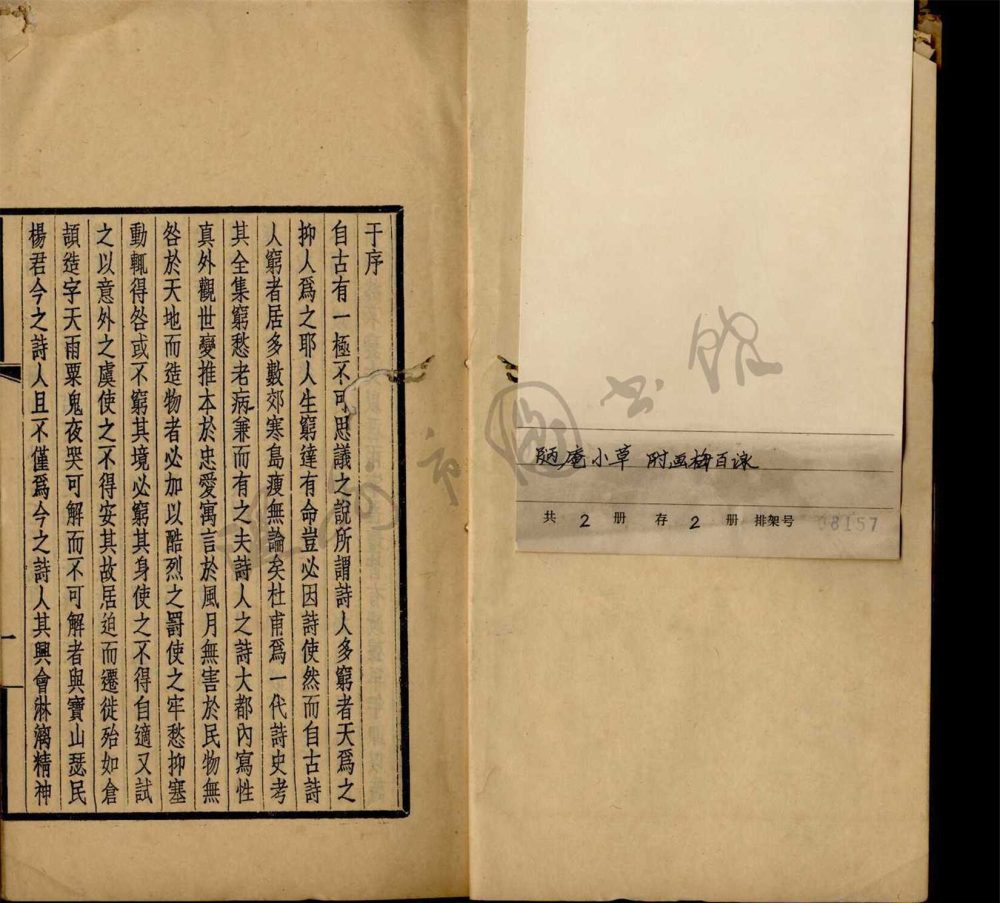 于序
自古有一極不可思議之說所謂詩人多窮者天爲之
抑人爲之耶人生窮達有命豈必因詩使然而自古詩
人窮者居多數郊寒島瘦無論矣杜甫爲一代詩史考
其全集窮愁老病兼而有之夫詩人之詩大都內寫性
真外觀世變推本於忠愛寓言於風月無害於民物無
咎於天地而造物者必加以酷烈之罰使之牢愁抑塞
動輒得咎或不窮其境必窮其身使之不得自適又試
之以意外之虞使之不得安其故居迫而遷徙殆如倉
頡造字天雨粟鬼夜哭可解而不可解者與寶山瑟民
楊君今之詩人且不僅爲今之詩人其興會淋漓精神
一
庵小草 附画梅百詠
共 2 册 存 2 册 排架号 08157
市圖书館